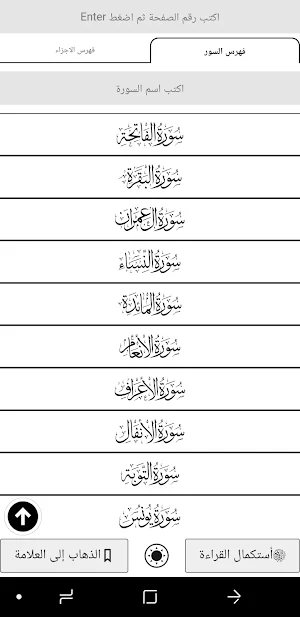 اكتب رقم الصفحة ثم اضغط Enter
فهرس السور
فهرس الاجزاء
اكتب اسم السورة
سورة الفاتحة
سورة البقرة
سورة آل عمران
سورة النساء
سورة المائدة
سورة الأنعام
سورة الأعراف
سورة الأنفال
سورة التوبة
سورة يونس
أستكمال القراءة
الذهاب إلى العلامة